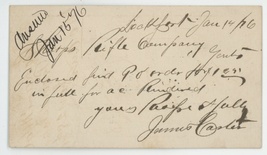 Answered
Jan 15/76
Lockport Jan 14/76
Rifle Company
Gents
Enclosed find P O order for
in full for a/c Rendered
yours Respectfully
James Carter